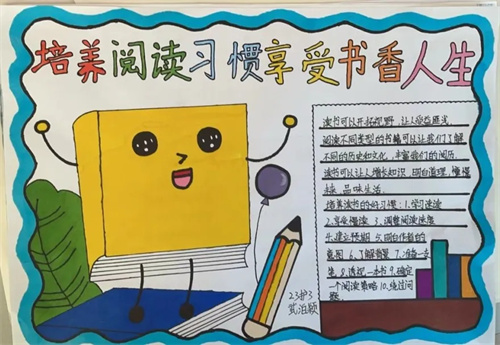 培养阅读习惯享受书香人生
读书可以开拓视野,让人受益匪浅
阅读不同类型的书籍可以让我们了解
不同的历史和文化,丰富我们的阅历。
读书可以让人增长知识,明白道理,懂得
品味生活
培养读书的好习惯:1.学习速读
2.享受慢读 3.调整阅读速度
4.建立预期 5.明白作者的
意图 6.了解背景 7.准备一支
笔 8.透视一本书 9.确定
一个阅读策略 10.绕过问
题
23护3